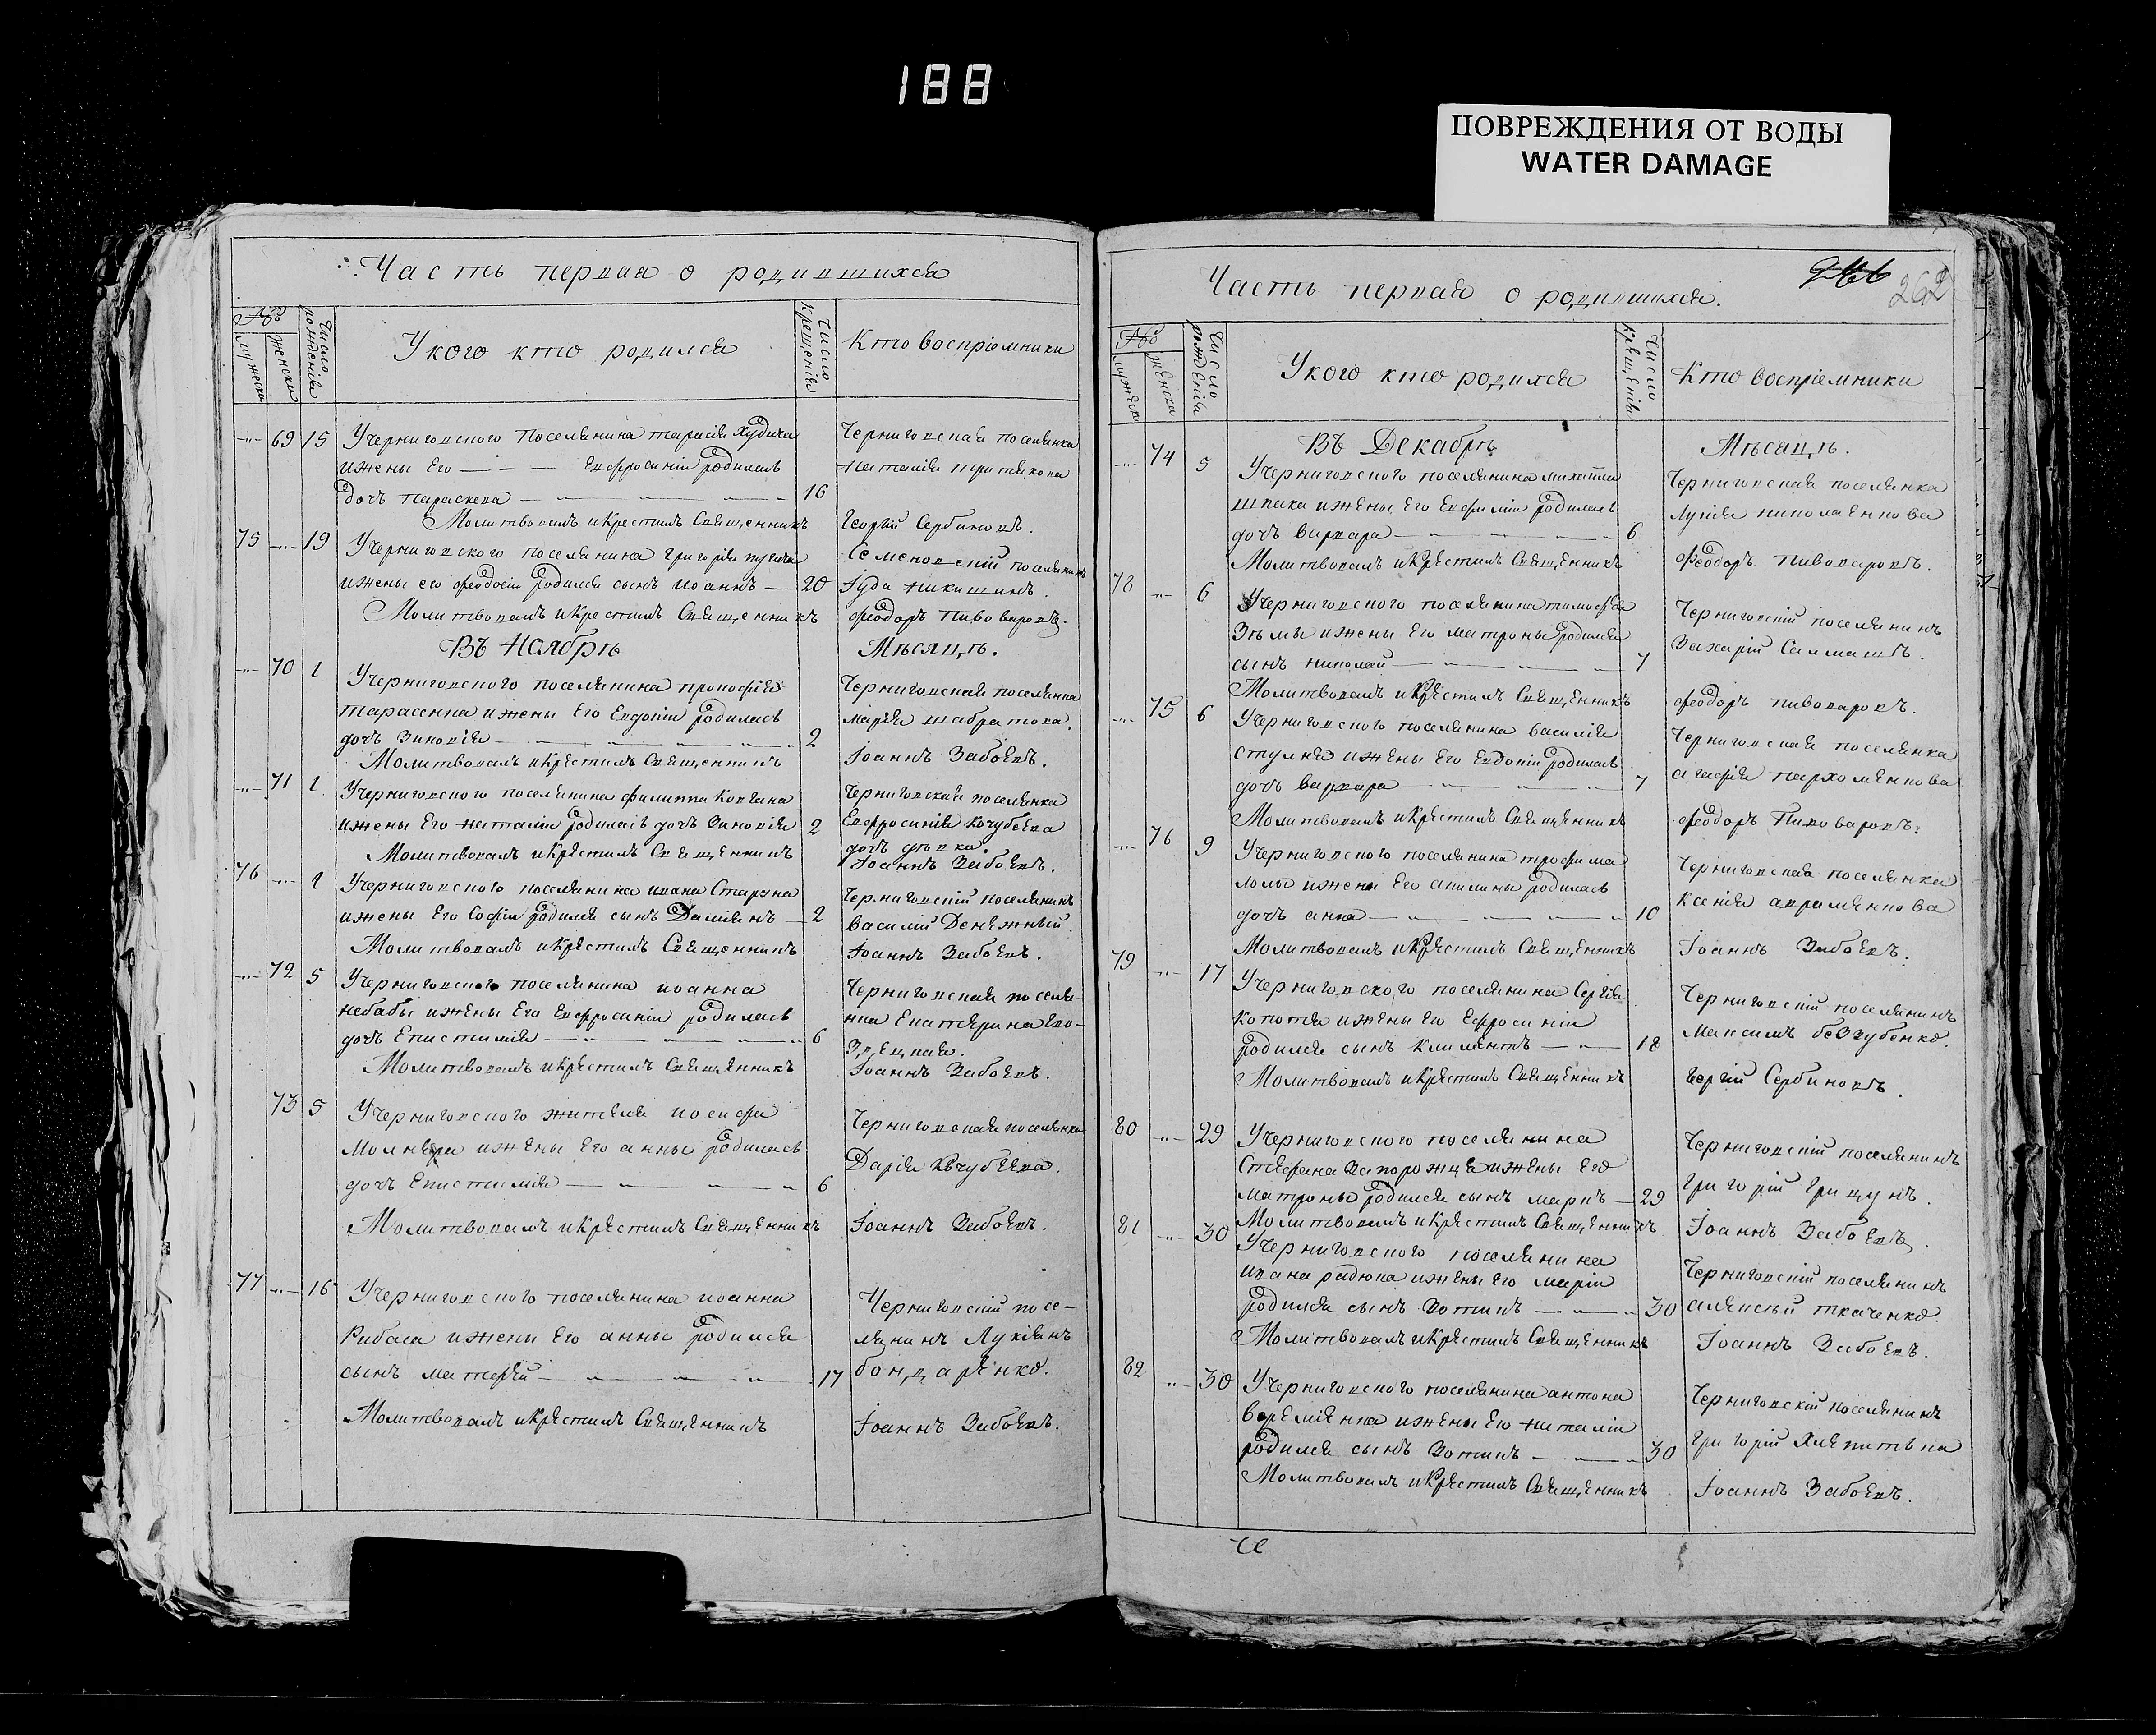 188
ПОВРЕЖДЕНИЯ ОТ ВОДЫ
WATER DAMAGE
Часть первая о родившихся
№
мужеска
женска
Число рожденія
У кого кто родился
Число крещенія
Кто воспріемники
69 15 У черниговского поселянина тарасія
и жены его Евфросиніи родилась
дочь параскева 16
Черниговская поселянка
наталія
Молитвовалъ и крестилъ Священникъ Георгій Сербиновъ.
75 19 У черниговского поселянина григорія
и жены его феодосіи родился сынъ иоаннъ 20
Семеновскій поселянинъ
Іуда никишинъ.
Молитвовалъ и крестилъ Священникъ феодоръ пивоваровъ.
Въ Ноябрѣ Мѣсяцѣ.
70 1 У черниговского поселянина прокофія
тарасенка и жены Его Евдокіи родилась
дочь Зиновія 2
Черниговская поселянка
марія шабратова.
Молитвовалъ и крестилъ Священникъ Іоаннъ Забоевъ.
71 1 У черниговского поселянина филиппа
и жены Его наталіи родилась дочь Зиновія 2
Черниговская поселянка
Евфросинія Кочубеева
дочь девка.
Молитвовалъ и крестилъ Священникъ Іоаннъ Забоевъ.
76 1 У черниговского поселянина ивана
и жены Его Софіи родился сынъ Даміянъ 2
Черниговскій поселянинъ
василій Денежный.
Молитвовалъ и крестилъ Священникъ Іоаннъ Забоевъ.
72 5 У черниговского поселянина иоанна
небабы и жены Его Евфросиніи родилась
дочь Епистимія 6
Черниговская поселян-
ка Екатерина
Молитвовалъ и крестилъ Священникъ Іоаннъ Забоевъ.
73 5 У черниговского жителя иосифа
и жены Его анны родилась
дочь Епистимія 6
Черниговская поселянка
Дарія Кочубеева.
Молитвовалъ и крестилъ Священникъ Іоаннъ Забоевъ.
77 16 У черниговского поселянина иоанна
Рибаса и жены Его анны родился
сынъ матфей 17
Черниговскій посе-
лянинъ Лукіянъ
бондаренко.
Молитвовалъ и крестилъ Священникъ Іоаннъ Забоевъ.
262
Часть первая о родившихся.
№
мужеска
женска
Число рожденія
У кого кто родился
Число крещенія
Кто воспріемники
Въ Декабрѣ Мѣсяцѣ.
74 5 У черниговского поселянина михаила
шпака и жены Его Евфиміи родилась
дочь варвара 6
Черниговская поселянка
Лукія николаенкова
Молитвовалъ и крестилъ Священникъ феодоръ пивоваровъ.
78 6 У черниговского поселянина тимофея
и жены Его матроны родился
сынъ николай 7
Черниговскій поселянинъ
Захарій Салмашъ.
Молитвовалъ и крестилъ Священникъ феодоръ пивоваровъ.
75 6 У черниговского поселянина василія
и жены Его Евдокіи родилась
дочь варвара 7
Черниговская поселянка
агафія пархоменкова
Молитвовалъ и крестилъ Священникъ феодоръ Пивоваровъ.
76 9 У черниговского поселянина трофима
и жены Его акилины родилась
дочь анна 10
Черниговская поселянка
Ксенія авраменкова
Молитвовалъ и крестилъ Священникъ Іоаннъ Забоевъ.
79 17 У черниговского поселянина Сергія
и жены Его Ефросиніи
родился сынъ климентъ 18
Черниговскій поселянинъ
Максимъ беззубенко.
Молитвовалъ и крестилъ Священникъ Георгій Сербиновъ.
80 29 У черниговского поселянина
Стефана Запорожца и жены Его
матроны родился сынъ маркъ 29
Черниговскій поселянинъ
григорій грицунъ.
Молитвовалъ и крестилъ Священникъ Іоаннъ Забоевъ.
81 30 У черниговского поселянина
ивана радюка и жены Его маріи
родился сынъ Зотикъ 30
Черниговскій поселянинъ
алексѣй ткаченко.
Молитвовалъ и крестилъ Священникъ Іоаннъ Забоевъ.
82 30 У черниговского поселянина антона
и жены Его наталіи
родился сынъ Зотикъ 30
Черниговскій поселянинъ
григорій
Молитвовалъ и крестилъ Священникъ Іоаннъ Забоевъ.